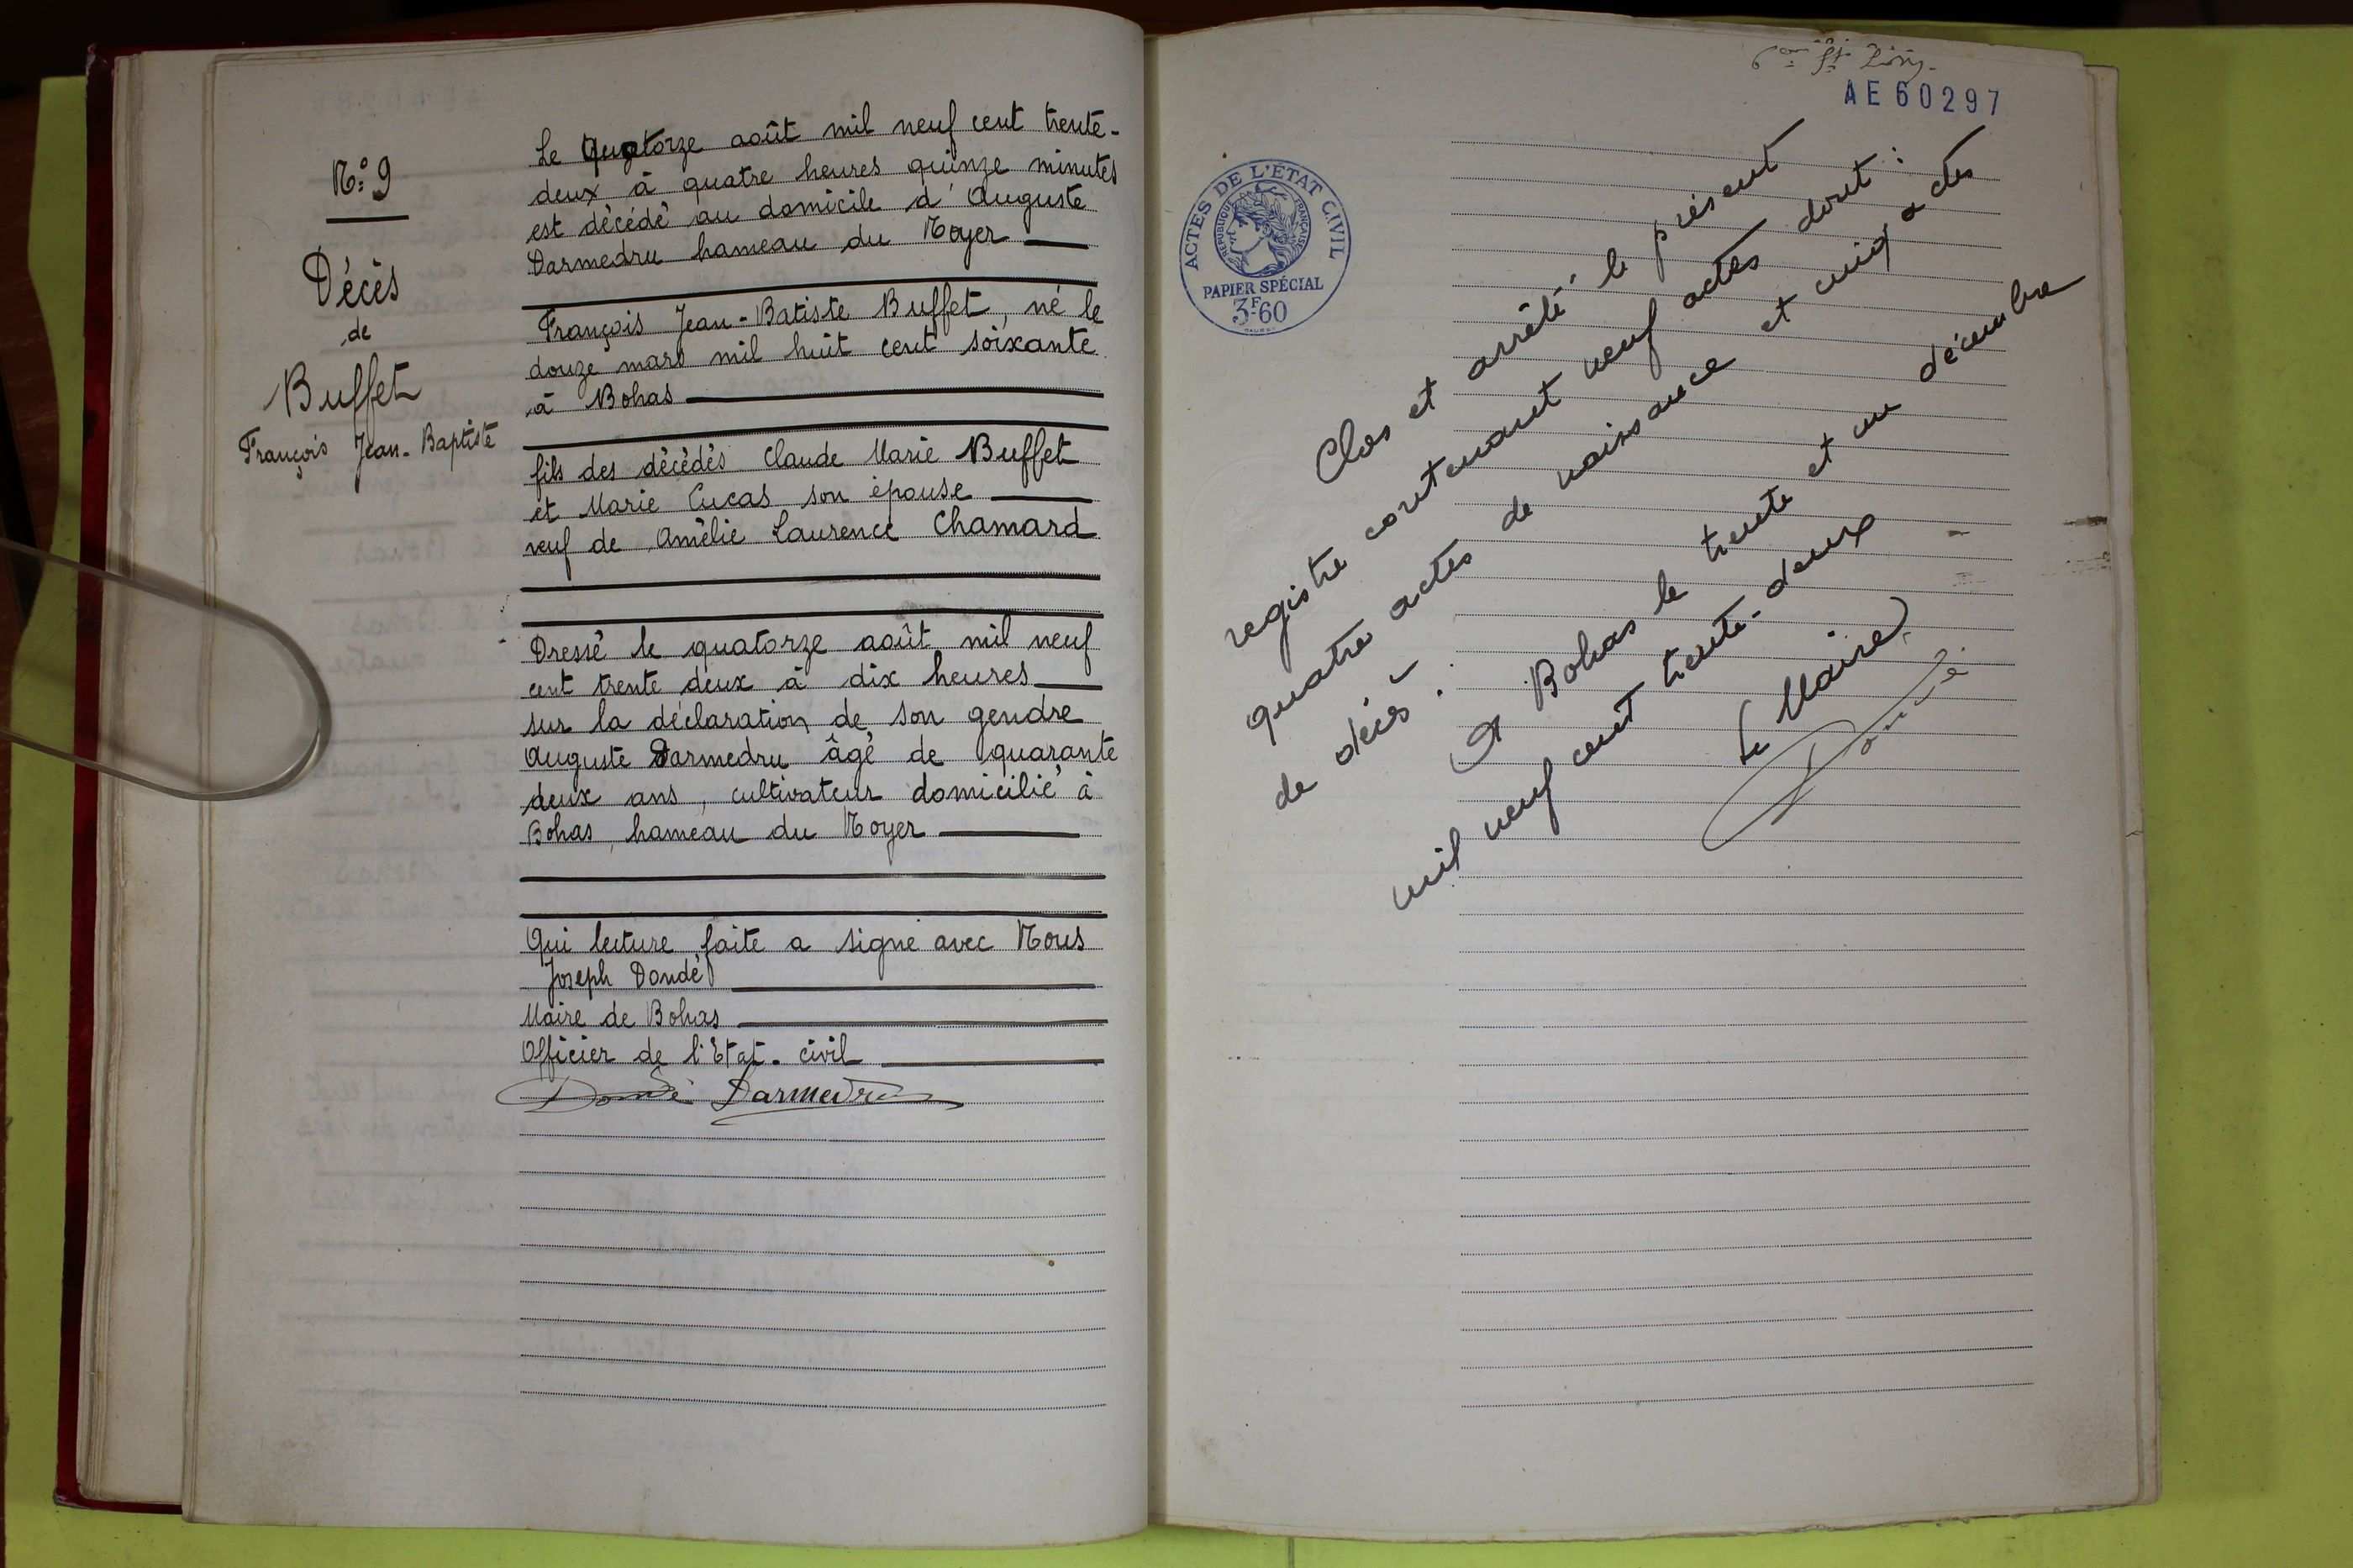 N° 9
Décès
de
Buffet
François Jean-Baptiste
Le Quatorze août mil neuf cent trente-
deux à quatre heures quinze minutes
est décédé au domicile d'Auguste
Darmedru hameau du Noyer
François Jean-Batiste Buffet, né le
douze mars mil huit cent soixante
à Bohas
fils des décédés Claude Marie Buffet
et Marie Cucas son épouse
veuf de Amélie Laurence Chamard
Dressé le quatorze août mil neuf
cent trente deux à dix heures
sur la déclaration de son gendre
Auguste Darmedru âgé de quarante
deux ans, cultivateur domicilié à
Bohas, hameau du Noyer
Qui lecture faite a signé avec Nous
Joseph Dondé
Maire de Bohas
Officier de l'Etat-civil
Dondé Darmedru
AE 60297
ACTES DE L'ÉTAT CIVIL
RÉPUBLIQUE FRANÇAISE
PAPIER SPÉCIAL
3F60
Clos et arrêté le présent
registre contenant neuf actes dont :
quatre actes de naissance et cinq actes
de décès.
A Bohas le trente et un décembre
mil neuf cent trente-deux
Le Maire,
Dondé